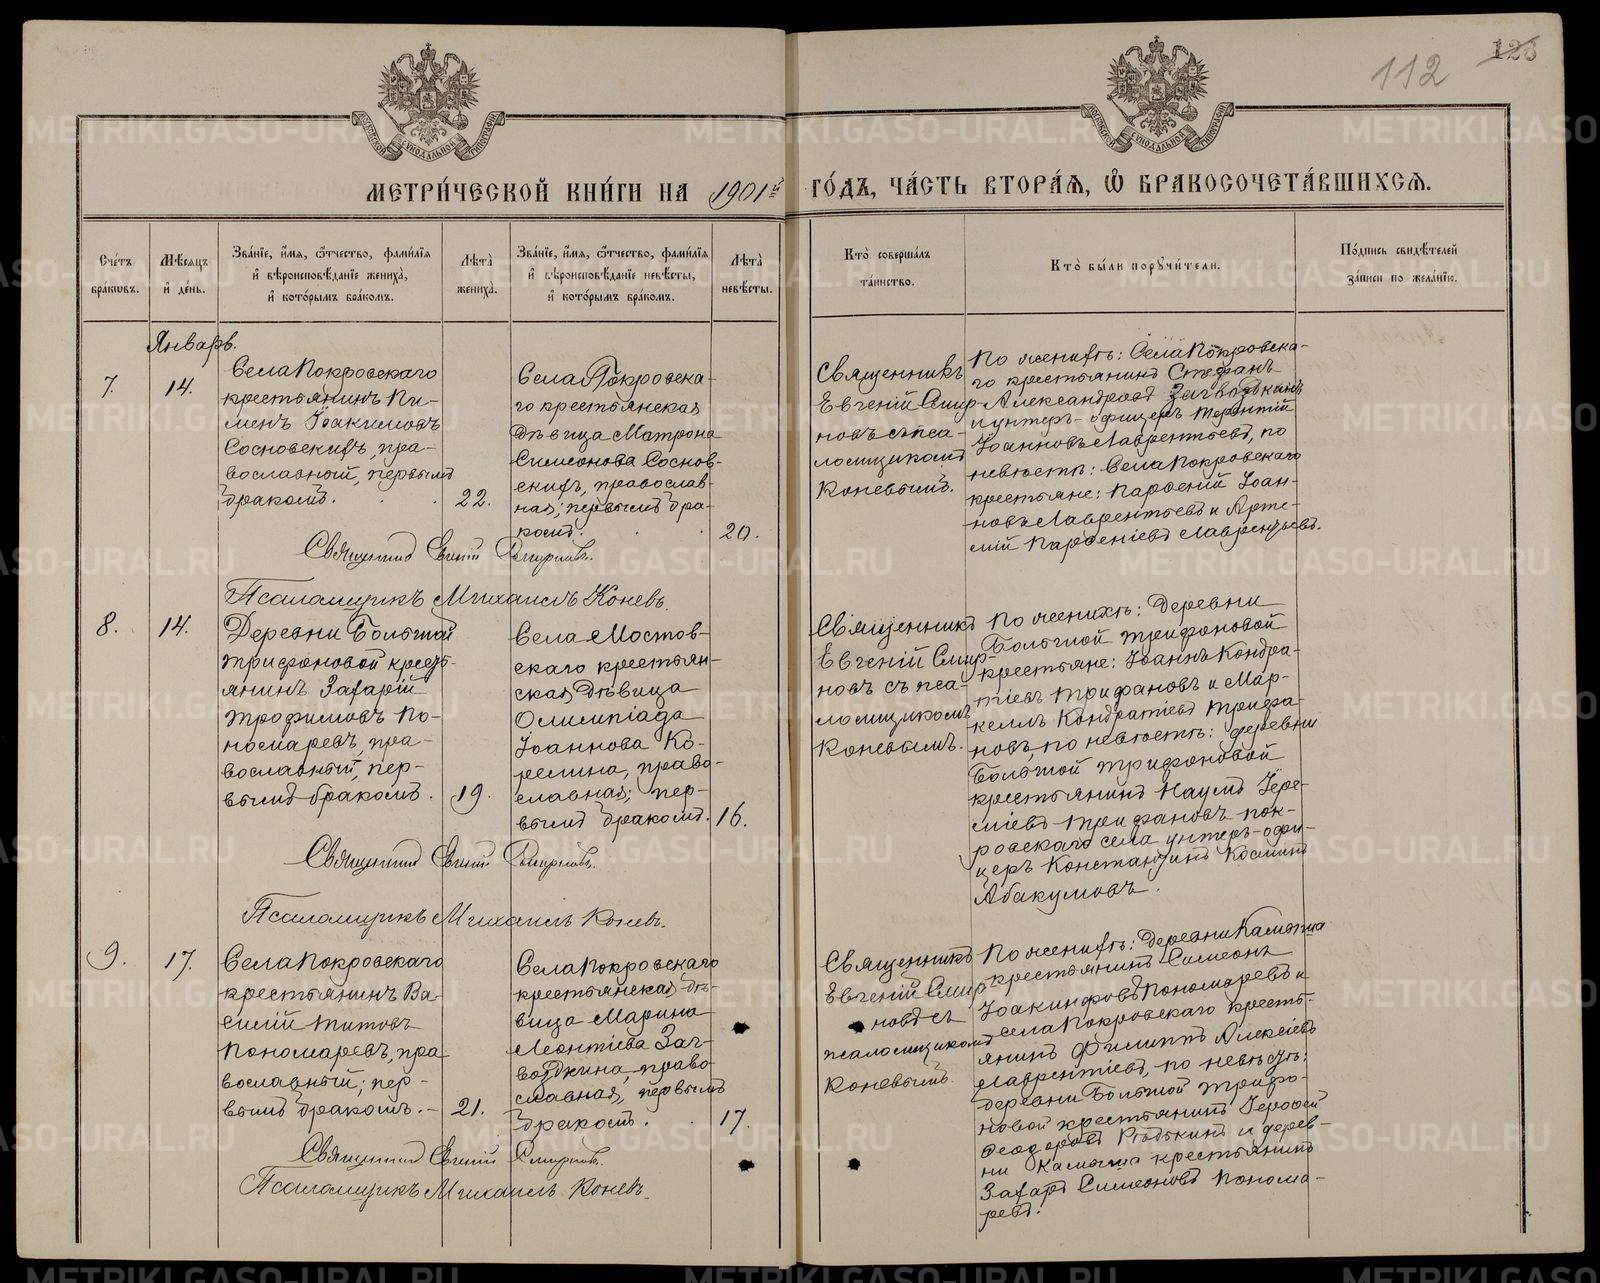 112
123
МЕТРИ́ЧЕСКОЙ КНИ́ГИ НА 1901й ГО́ДЪ, ЧА́СТЬ ВТОРА́Я, Ѡ҆ БРАКОСОЧЕТА́ВШИХСЯ.
Сче́тъ бра́кωвъ.
Мѣ́сяцъ и҆ де́нь.
Зва́нїе, и҆́мя, ѻ҆́тчество, фами́лїя и҆ вѣроисповѣ́данїе жениха̀, и҆ кото́рымъ бра́комъ.
Лѣ́та жениха̀.
Зва́нїе, и҆́мя, ѻ҆́тчество, фами́лїя и҆ вѣроисповѣ́данїе невѣ́сты, и҆ кото́рымъ бра́комъ.
Лѣ́та невѣ́сты.
Кто̀ соверша́лъ та́инство.
Кто̀ бы́ли порꙋчи́тели.
По́дпись свидѣ́телей за́писи по жела́нїю.
Январь.
7.
14.
Села Покровскаго
крестьянинъ Пи-
менъ Іоакимовъ
Сосновскихъ, пра-
вославный, первымъ
бракомъ.
22.
Села Покровска-
го крестьянская
дѣвица Матрона
Симеонова Соснов-
скихъ, православ-
ная; первымъ бра-
комъ.
20.
Священникъ
Евгеній Смир-
новъ съ пса-
ломщикомъ
Коневымъ.
По женихѣ: Села Покровска-
го крестьянинъ Стефанъ
Александровъ Загвоздкинъ
и унтеръ-офицеръ Терентій
Іоанновъ Лаврентьевъ, по
невѣстѣ: Села Покровскаго
крестьяне: Парѳеній Іоан-
новъ Лаврентьевъ и Арте-
мій Парѳеніевъ Лаврентьевъ.
Священникъ Евгеній Смирновъ.
Псаломщикъ Михаилъ Коневъ.
8.
14.
Деревни Большой
Трифоновой кресть-
янинъ Захарій
Трофимовъ По-
номаревъ, пра-
вославный, пер-
вымъ бракомъ.
19.
Села Мостов-
скаго крестьян-
ская дѣвица
Олимпіада
Іоаннова Ко-
релина, право-
славная; пер-
вымъ бракомъ.
16.
Священникъ
Евгеній Смир-
новъ съ пса-
ломщикомъ
Коневымъ.
По женихѣ: Деревни
Большой Трифоновой
крестьяне: Іоаннъ Кондра-
тіевъ Трифановъ и Мар-
келлъ Кондратіевъ Трифа-
новъ, по невѣстѣ: деревни
Большой Трифоновой
крестьянинъ Наумъ Іере-
міевъ Трифановъ Пок-
ровскаго села унтеръ-офи-
церъ Константинъ Косминъ
Абакумовъ.
Священникъ Евгеній Смирновъ.
Псаломщикъ Михаилъ Коневъ.
9.
17.
Села Покровскаго
крестьянинъ Ва-
силій Титовъ
Пономаревъ, пра-
вославный; пер-
вымъ бракомъ.
21.
Села Покровскаго
крестьянская дѣ-
вица Марина
Леонтіева Заг-
воздкина, право-
славная, первымъ
бракомъ.
17.
Священникъ
Евгеній Смир-
новъ съ
псаломщикомъ
Коневымъ.
По женихѣ: Деревни Камышиа
крестьянинъ Симеонъ
Іоакинфовъ Пономаревъ и
села Покровскаго кресть-
янинъ Филиппъ Алексіевъ
Лаврентіевъ, по невѣстѣ:
деревни Большой Трифо-
новой крестьянинъ Іероѳей
Ѳеодоровъ и дерев-
ни крестьянинъ
Захаръ Симеоновъ Понома-
ревъ.
Священникъ Евгеній Смирновъ.
Псаломщикъ Михаилъ Коневъ.
METRIKI.GASO-URAL.RU